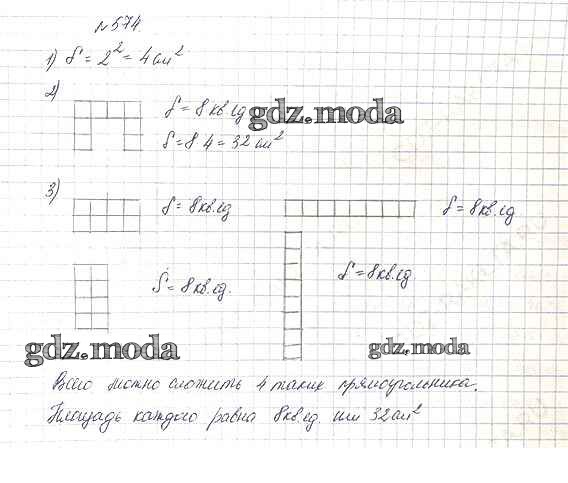 №574.
1) S = 2² = 4 см²
2)
S = 8 кв.ед
gdz.moda
S = 8 4 = 32 см²
3)
S = 8кв.ед
S = 8кв.ед
S = 8кв.ед.
S = 8кв.ед.
gdz.moda
gdz.moda
Всего можно сложить 4 таких прямоугольника.
Площадь каждого равна 8кв.ед. или 32см²